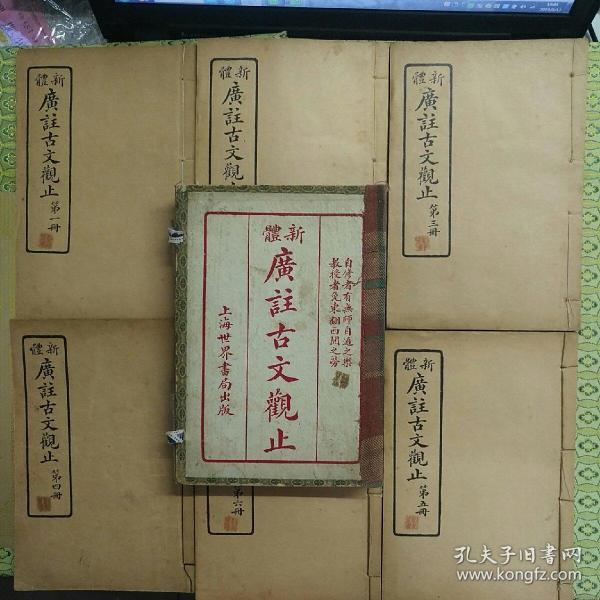 新體
廣註古文觀止
第一冊
新體
廣註古文觀
新體
廣註古文觀止
第三冊
新體
廣註古文觀止
自修者有無師自通之樂
教授者免東翻西閱之勞
上海世界書局出版
新體
廣註古文觀止
第四冊
第六冊
新體
廣註古文觀止
第五冊
孔夫子旧书网
www.kongfz.com